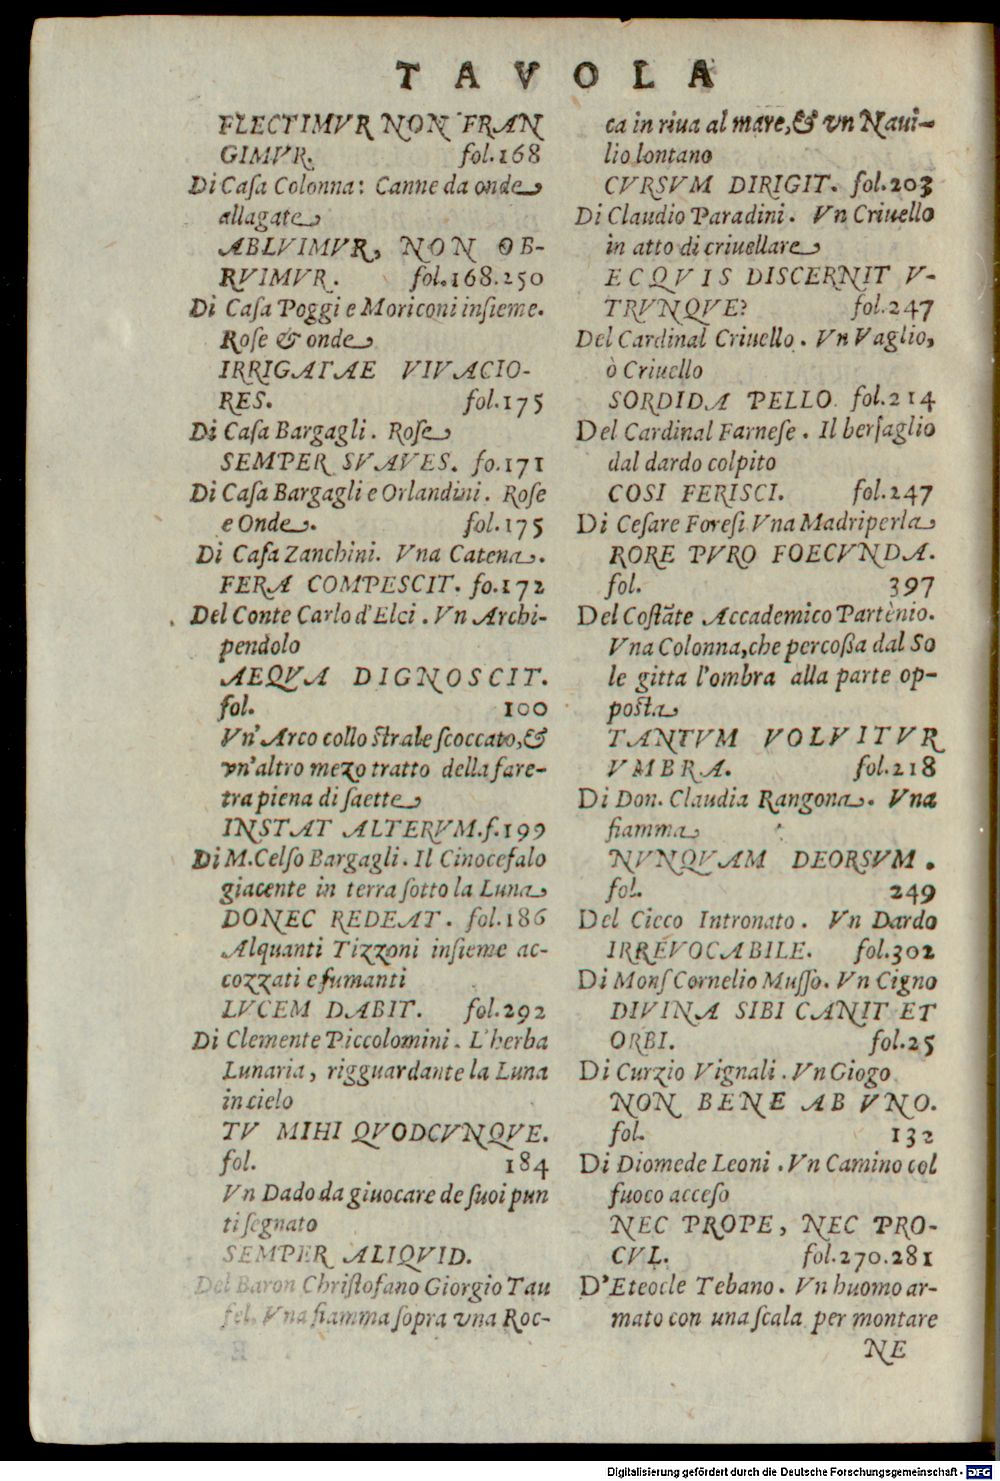 TAVOLA
FLECTIMVR NON FRAN
GIMVR. fol.168
Di Caſa Colonna: Canne da onde
allagate
ABLVIMVR, NON OB-
RVIMVR. fol.168.250
Di Caſa Poggi e Moriconi inſieme.
Roſe & onde
IRRIGATAE VIVACIO-
RES. fol.175
Di Caſa Bargagli. Roſe
SEMPER SVAVES. fo.171
Di Caſa Bargagli e Orlandini. Roſe
e Onde. fol.175
Di Caſa Zanchini. Vna Catena.
FERA COMPESCIT. fo.172
Del Conte Carlo d'Elci. Vn Archi-
pendolo
AEQVA DIGNOSCIT.
fol. 100
Vn' Arco collo ſtrale ſcoccato,&
vn'altro mezo tratto della fare-
tra piena di ſaette
INSTAT ALTERVM.f.199
Di M.Celſo Bargagli. Il Cinocefalo
giacente in terra ſotto la Luna
DONEC REDEAT. fol.186
Alquanti Tizzoni inſieme ac-
cozzati e fumanti
LVCEM DABIT. fol.292
Di Clemente Piccolomini. L'herba
Lunaria, rigguardante la Luna
in cielo
TV MIHI QVODCVNQVE.
fol. 184
Vn Dado da giuocare de ſuoi pun
ti ſegnato
SEMPER ALIQVID.
Del Baron Chriſtofano Giorgio Tau
fel. Vna fiamma ſopra vna Roc-
ca in riua al mare,& vn Naui-
lio lontano
CVRSVM DIRIGIT. fol.203
Di Claudio Paradini. Vn Criuello
in atto di criuellare
ECQVIS DISCERNIT V-
TRVNQVE? fol.247
Del Cardinal Criuello. Vn Vaglio,
ò Criuello
SORDIDA PELLO. fol.214
Del Cardinal Farneſe. Il berſaglio
dal dardo colpito
COSI FERISCI. fol.247
Di Ceſare Foreſi Vna Madriperla
RORE PVRO FOECVNDA.
fol. 397
Del Coſtãte Accademico Partènio.
Vna Colonna,che percoßa dal So
le gitta l'ombra alla parte op-
poſta
TANTVM VOLVITVR
VMBRA. fol.218
Di Don. Claudia Rangona. Vna
fiamma
NVNQVAM DEORSVM.
fol. 249
Del Cieco Intronato. Vn Dardo
IRREVOCABILE. fol.302
Di Monſ Cornelio Muſſo. Vn Cigno
DIVINA SIBI CANIT ET
ORBI. fol.25
Di Curzio Vignali. Vn Giogo
NON BENE AB VNO.
fol. 132
Di Diomede Leoni. Vn Camino col
fuoco acceſo
NEC PROPE, NEC PRO-
CVL. fol.270.281
D'Eteocle Tebano. Vn huomo ar-
mato con una ſcala per montare
NE
Digitalisierung gefördert durch die Deutsche Forschungsgemeinschaft - DFG